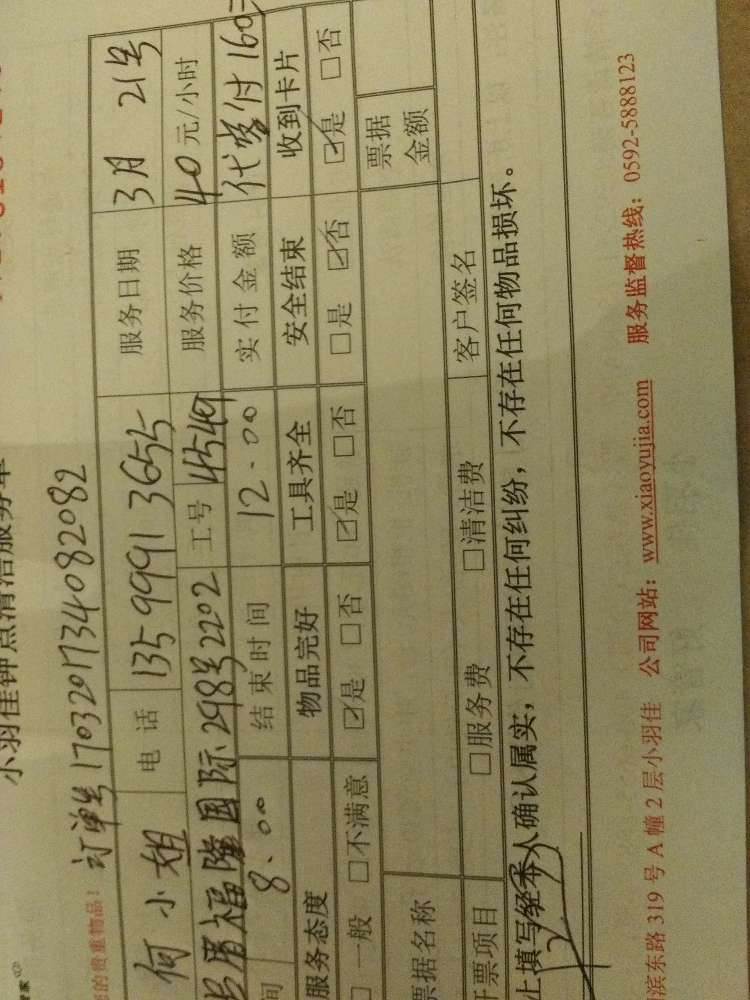 小羽佳钟点清洁服务单
您的贵重物品! 订单号1703201734082082
何小姐 电话 135 9991 3655 服务日期 3月21号
福隆国际298号2202 工号 4549 服务价格 40元/小时
间 8:00 结束时间 12:00 实付金额 代发付160
服务态度 物品完好 工具齐全 安全结束 收到卡片
□一般 □不满意 ☑是 □否 ☑是 □否 □是 ☑否 ☑是 □否
票据名称 票据金额
开票项目 □服务费 □清洁费 客户签名
上填写经本人确认属实,不存在任何纠纷,不存在任何物品损坏。
滨东路319号A幢2层小羽佳 公司网站:www.xiaoyujia.com 服务监督热线:0592-5888123